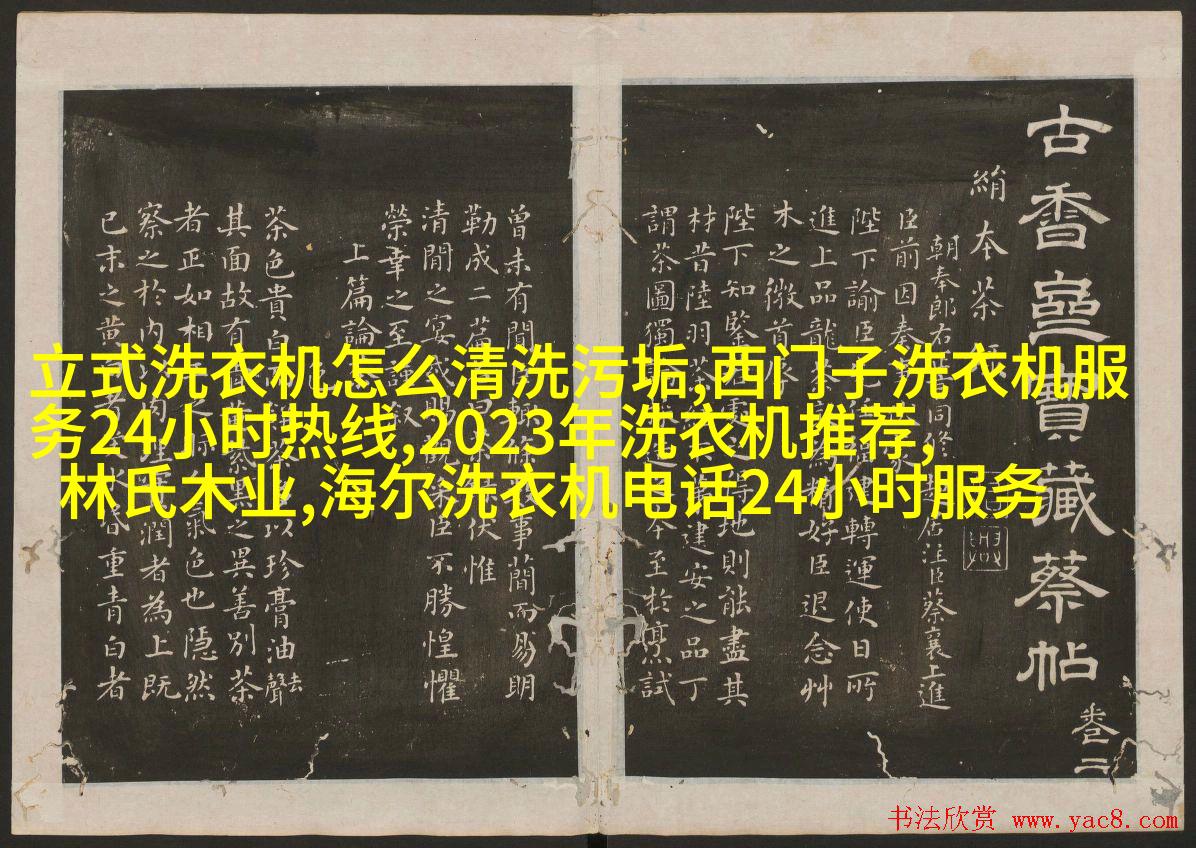 古香齋寶藏蔡帖
卷二
絹本茶
朝奉郎右
同修起居注臣蔡襄上進
臣前因奏
陛下諭臣
轉運使日所
進上品龍茶
精好臣退念艸
木之微首
陛下知鑒
地則能盡其
材昔陸羽茶
建安之品丁
謂茶圖獨
至於烹試
曾未有聞
事簡而易明
勒成二篇
伏惟
清閒之宴或賜
臣不勝惶懼
榮幸之至謹叙
上篇論
茶色貴白
以珍膏油去聲
其面故有
黑之異善別茶
者正如相
氣色也隱然
察之於內
潤者為上既
已末之黃
重青白者
立式洗衣机怎么清洗污垢,西门子洗衣机服
务24小时热线,2023年洗衣机推荐,
林氏木业,海尔洗衣机电话24小时服务
书法欣赏 www.yac8.com